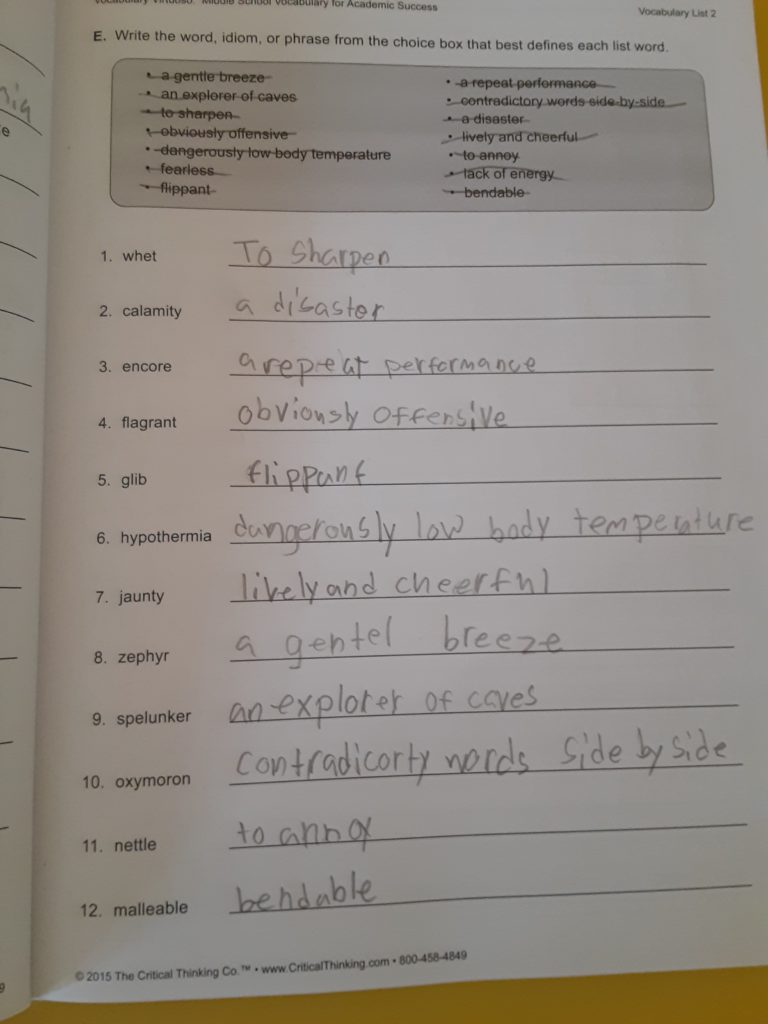 Vocabulary Virtuoso: Middle School Vocabulary for Academic Success
Vocabulary List 2
E. Write the word, idiom, or phrase from the choice box that best defines each list word.
• a gentle breeze
• an explorer of caves
• to sharpen
• obviously offensive
• dangerously low body temperature
• fearless
• flippant
• a repeat performance
• contradictory words side-by-side
• a disaster
• lively and cheerful
• to annoy
• lack of energy
• bendable
1. whet To Sharpen
2. calamity a disastor
3. encore a repeat performance
4. flagrant obviously offensive
5. glib flippant
6. hypothermia dangerously low body temperature
7. jaunty lively and cheerful
8. zephyr a gentel breeze
9. spelunker an explorer of caves
10. oxymoron contradicorty words side by side
11. nettle to annoy
12. malleable bendable
© 2015 The Critical Thinking Co.™ • www.CriticalThinking.com • 800-458-4849